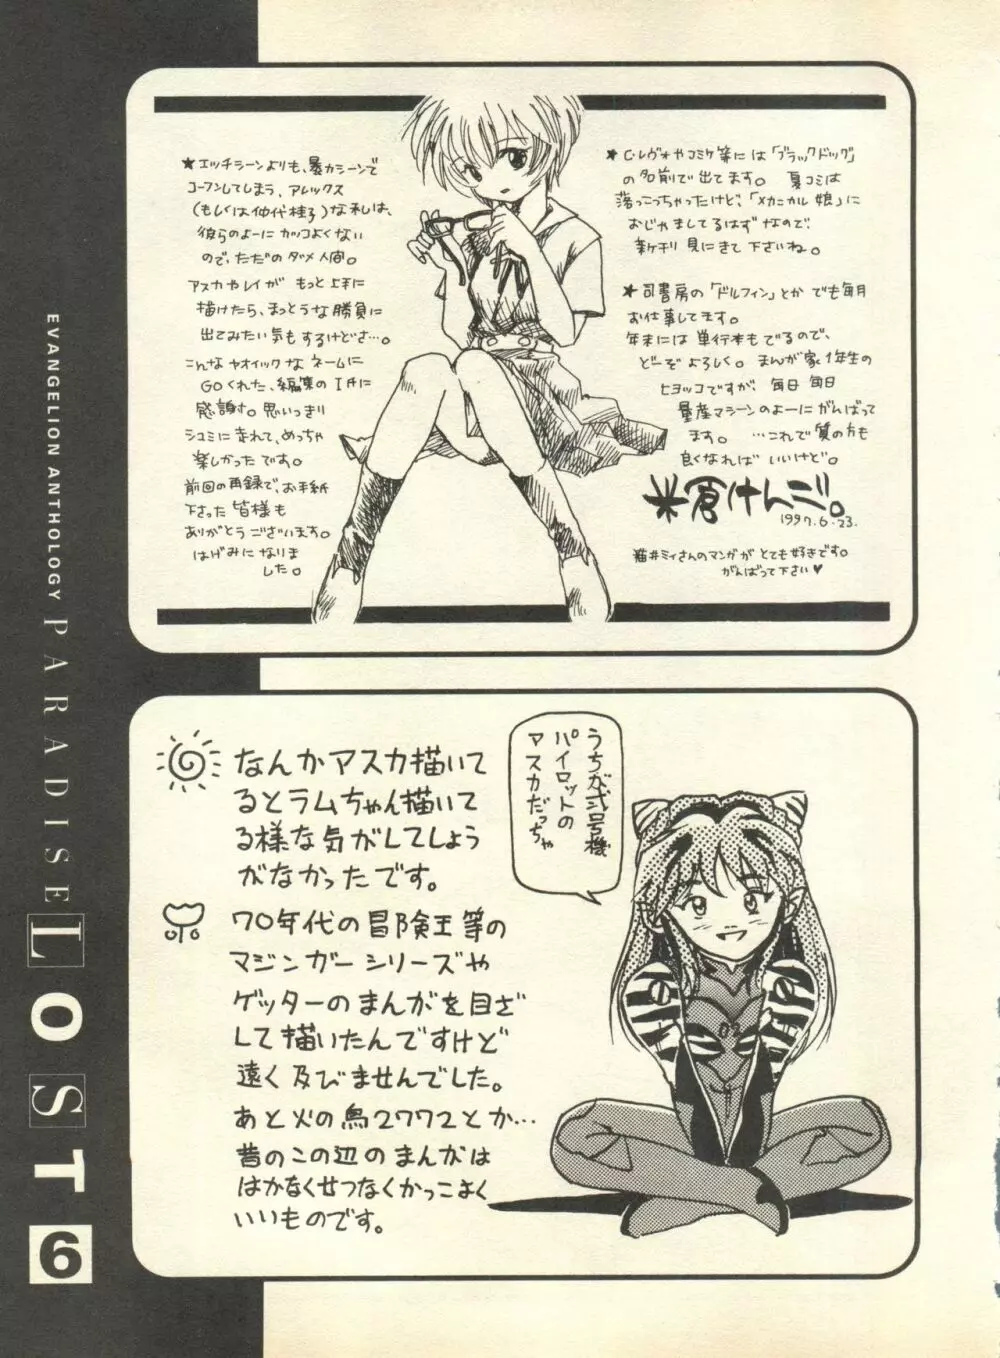 ★エッチシーンよりも、暴力シーンで
コーフンしてしまう、アレックス
(もしくは仲代桂子)な私は、
彼らのよーにカッコよくない
ので、ただのダメ人間。
アスカやレイが もっと上手に
描けたら、まっとうな勝負に
出てみたい気もするけどさ…。
こんなヤオイックなネームに
GOくれた、編集のI片に
感謝す。思いっきり
シュミに走れて、めっちゃ
楽しかったです。
前回の再録で、お手紙
下さった 皆様も
ありがとうございます。
はげみになりま
した。
★C・レヴォやコミケ等には「ブラックドッグ」
の名前で出てます。 夏コミは
落っこっちゃったけど、「メカニカル娘」に
おじゃましてるはずなので、
新刊見にきて下さいね。
★司書房の「ドルフィン」とかでも毎月
お仕事してます。
年末には単行本もでるので、
どーぞよろしく。まんが家1年生の
ヒヨッコですが 毎日毎日
量産マシーンのよーにがんばって
ます。 …これで質の方も
良くなればいいけど。
米倉けんご。
1997.6.23.
猫井ミィさんのマンガがとても好きです。
がんばって下さい♥
なんかアスカ描いて
るとラムちゃん描いて
る様な気がしてしょう
がなかったです。
70年代の冒険王等の
マジンガーシリーズや
ゲッターのまんがを目ざ
して描いたんですけど
遠く及びませんでした。
あと火の鳥2772とか…
昔のこの辺のまんがは
はかなくせつなくかっこよく
いいものです。
うちが弐号機
パイロットの
アスカだっちゃ
02
EVANGELION ANTHOLOGY PARADISE LOST 6